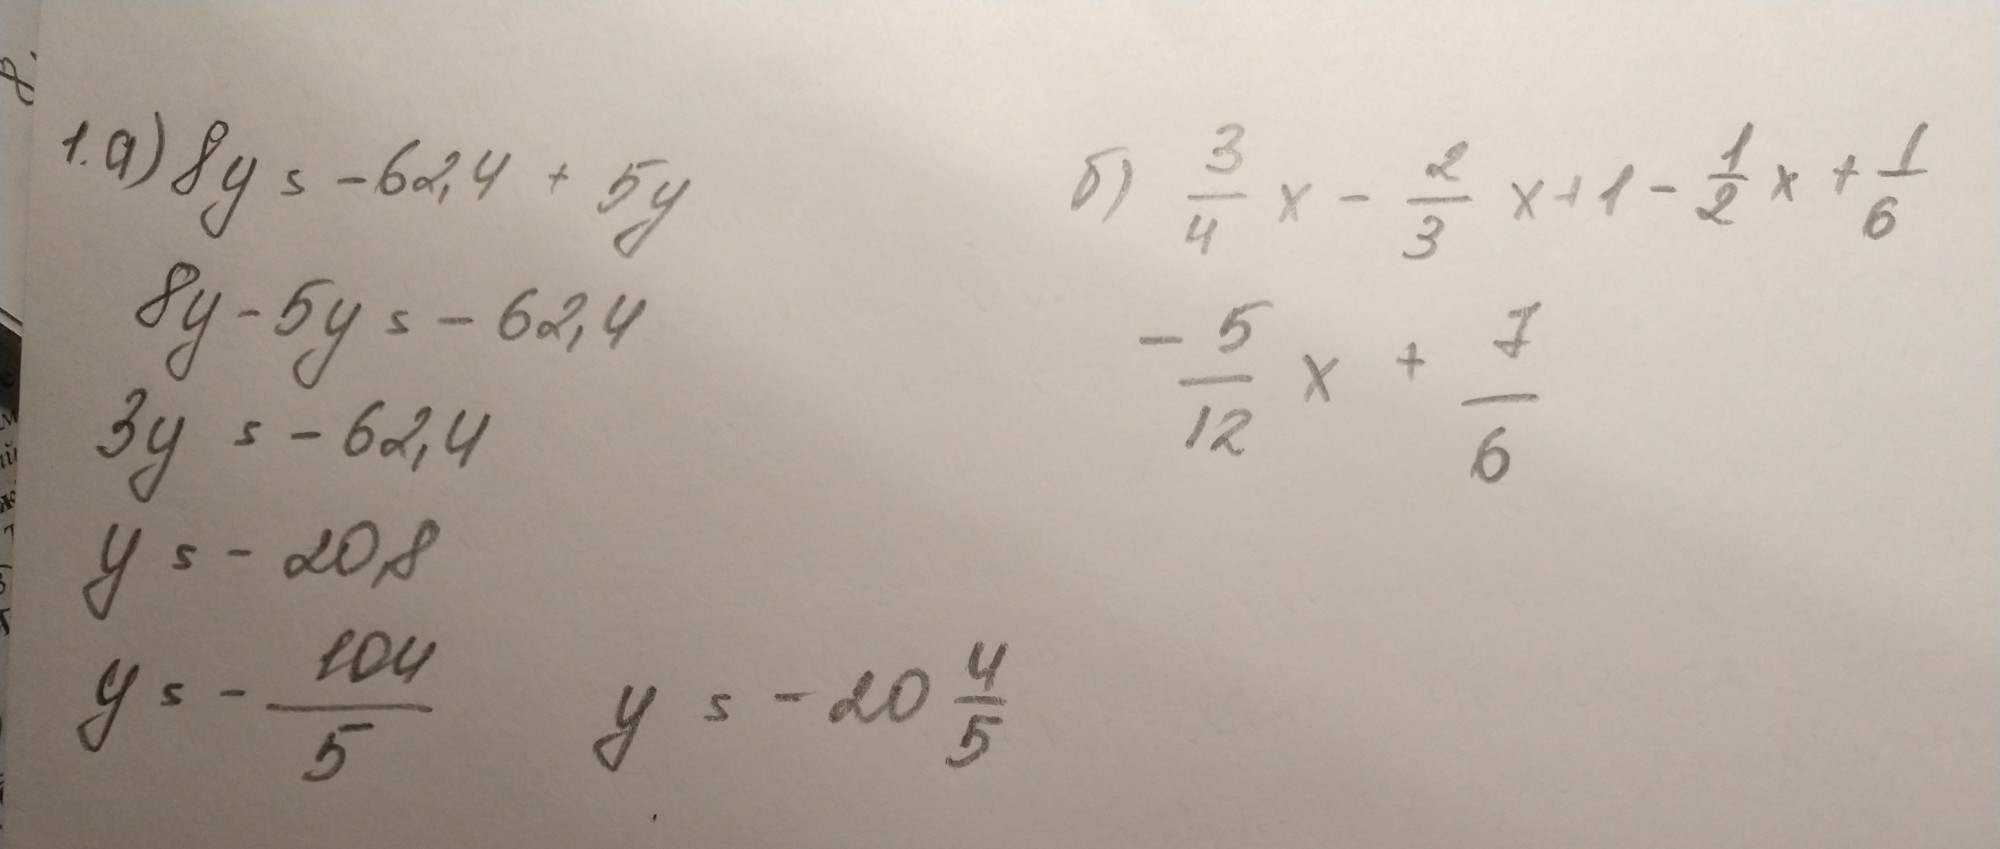 1.а) 8y = -62,4 + 5y
8y - 5y = - 62,4
3y = - 62,4
y = - 20,8
y = - 104/5 y = - 20 4/5
б) 3/4 x - 2/3 x + 1 - 1/2 x + 1/6
- 5/12 x + 7/6